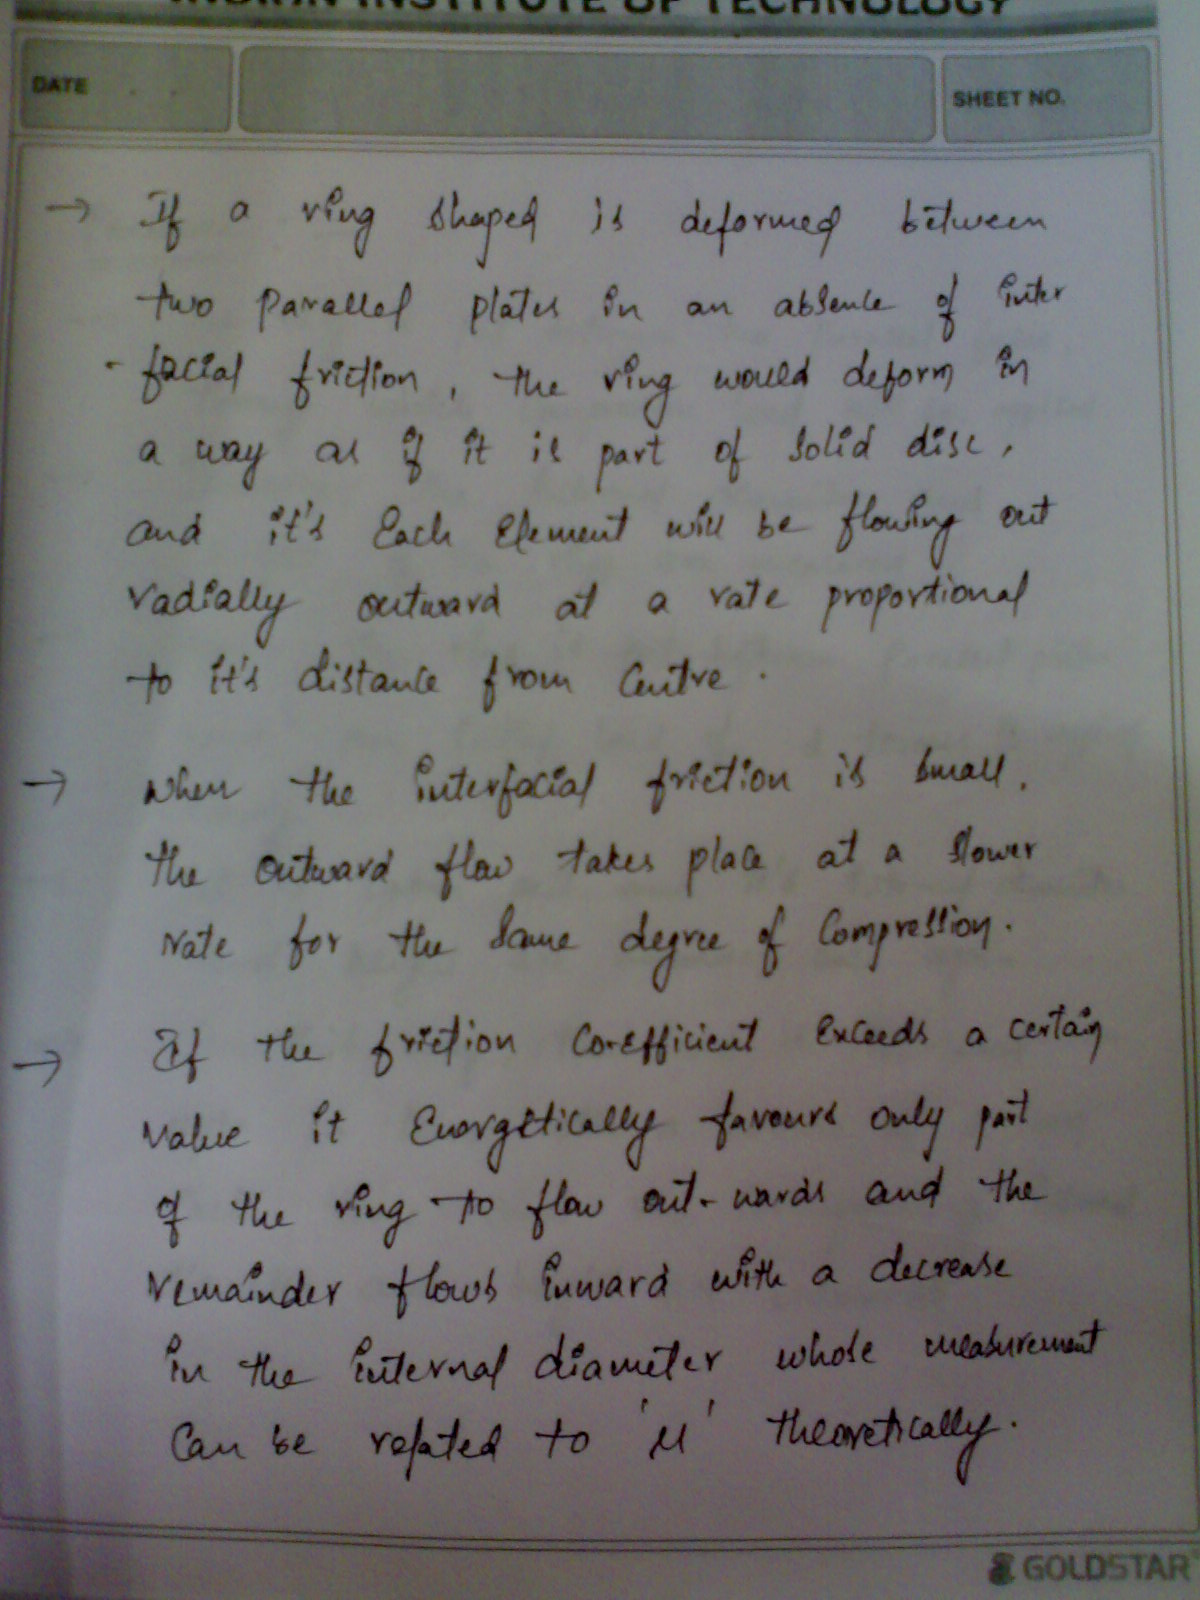 INDIAN INSTITUTE OF TECHNOLOGY
DATE
SHEET NO.
→ If a ring shaped is deformed between
two parallel plates in an absence of inter
-facial friction, the ring would deform in
a way as if it is part of solid disc,
and it's Each Element will be flowing out
radially outward at a rate proportional
to it's distance from Centre.
→ When the interfacial friction is small,
the outward flow takes place at a slower
rate for the same degree of Compression.
→ If the friction Co-efficient Exceeds a certain
value it Energetically favours only part
of the ring to flow out-wards and the
remainder flows inward with a decrease
in the internal diameter whose measurement
Can be related to 'μ' theoretically.
GOLDSTAR